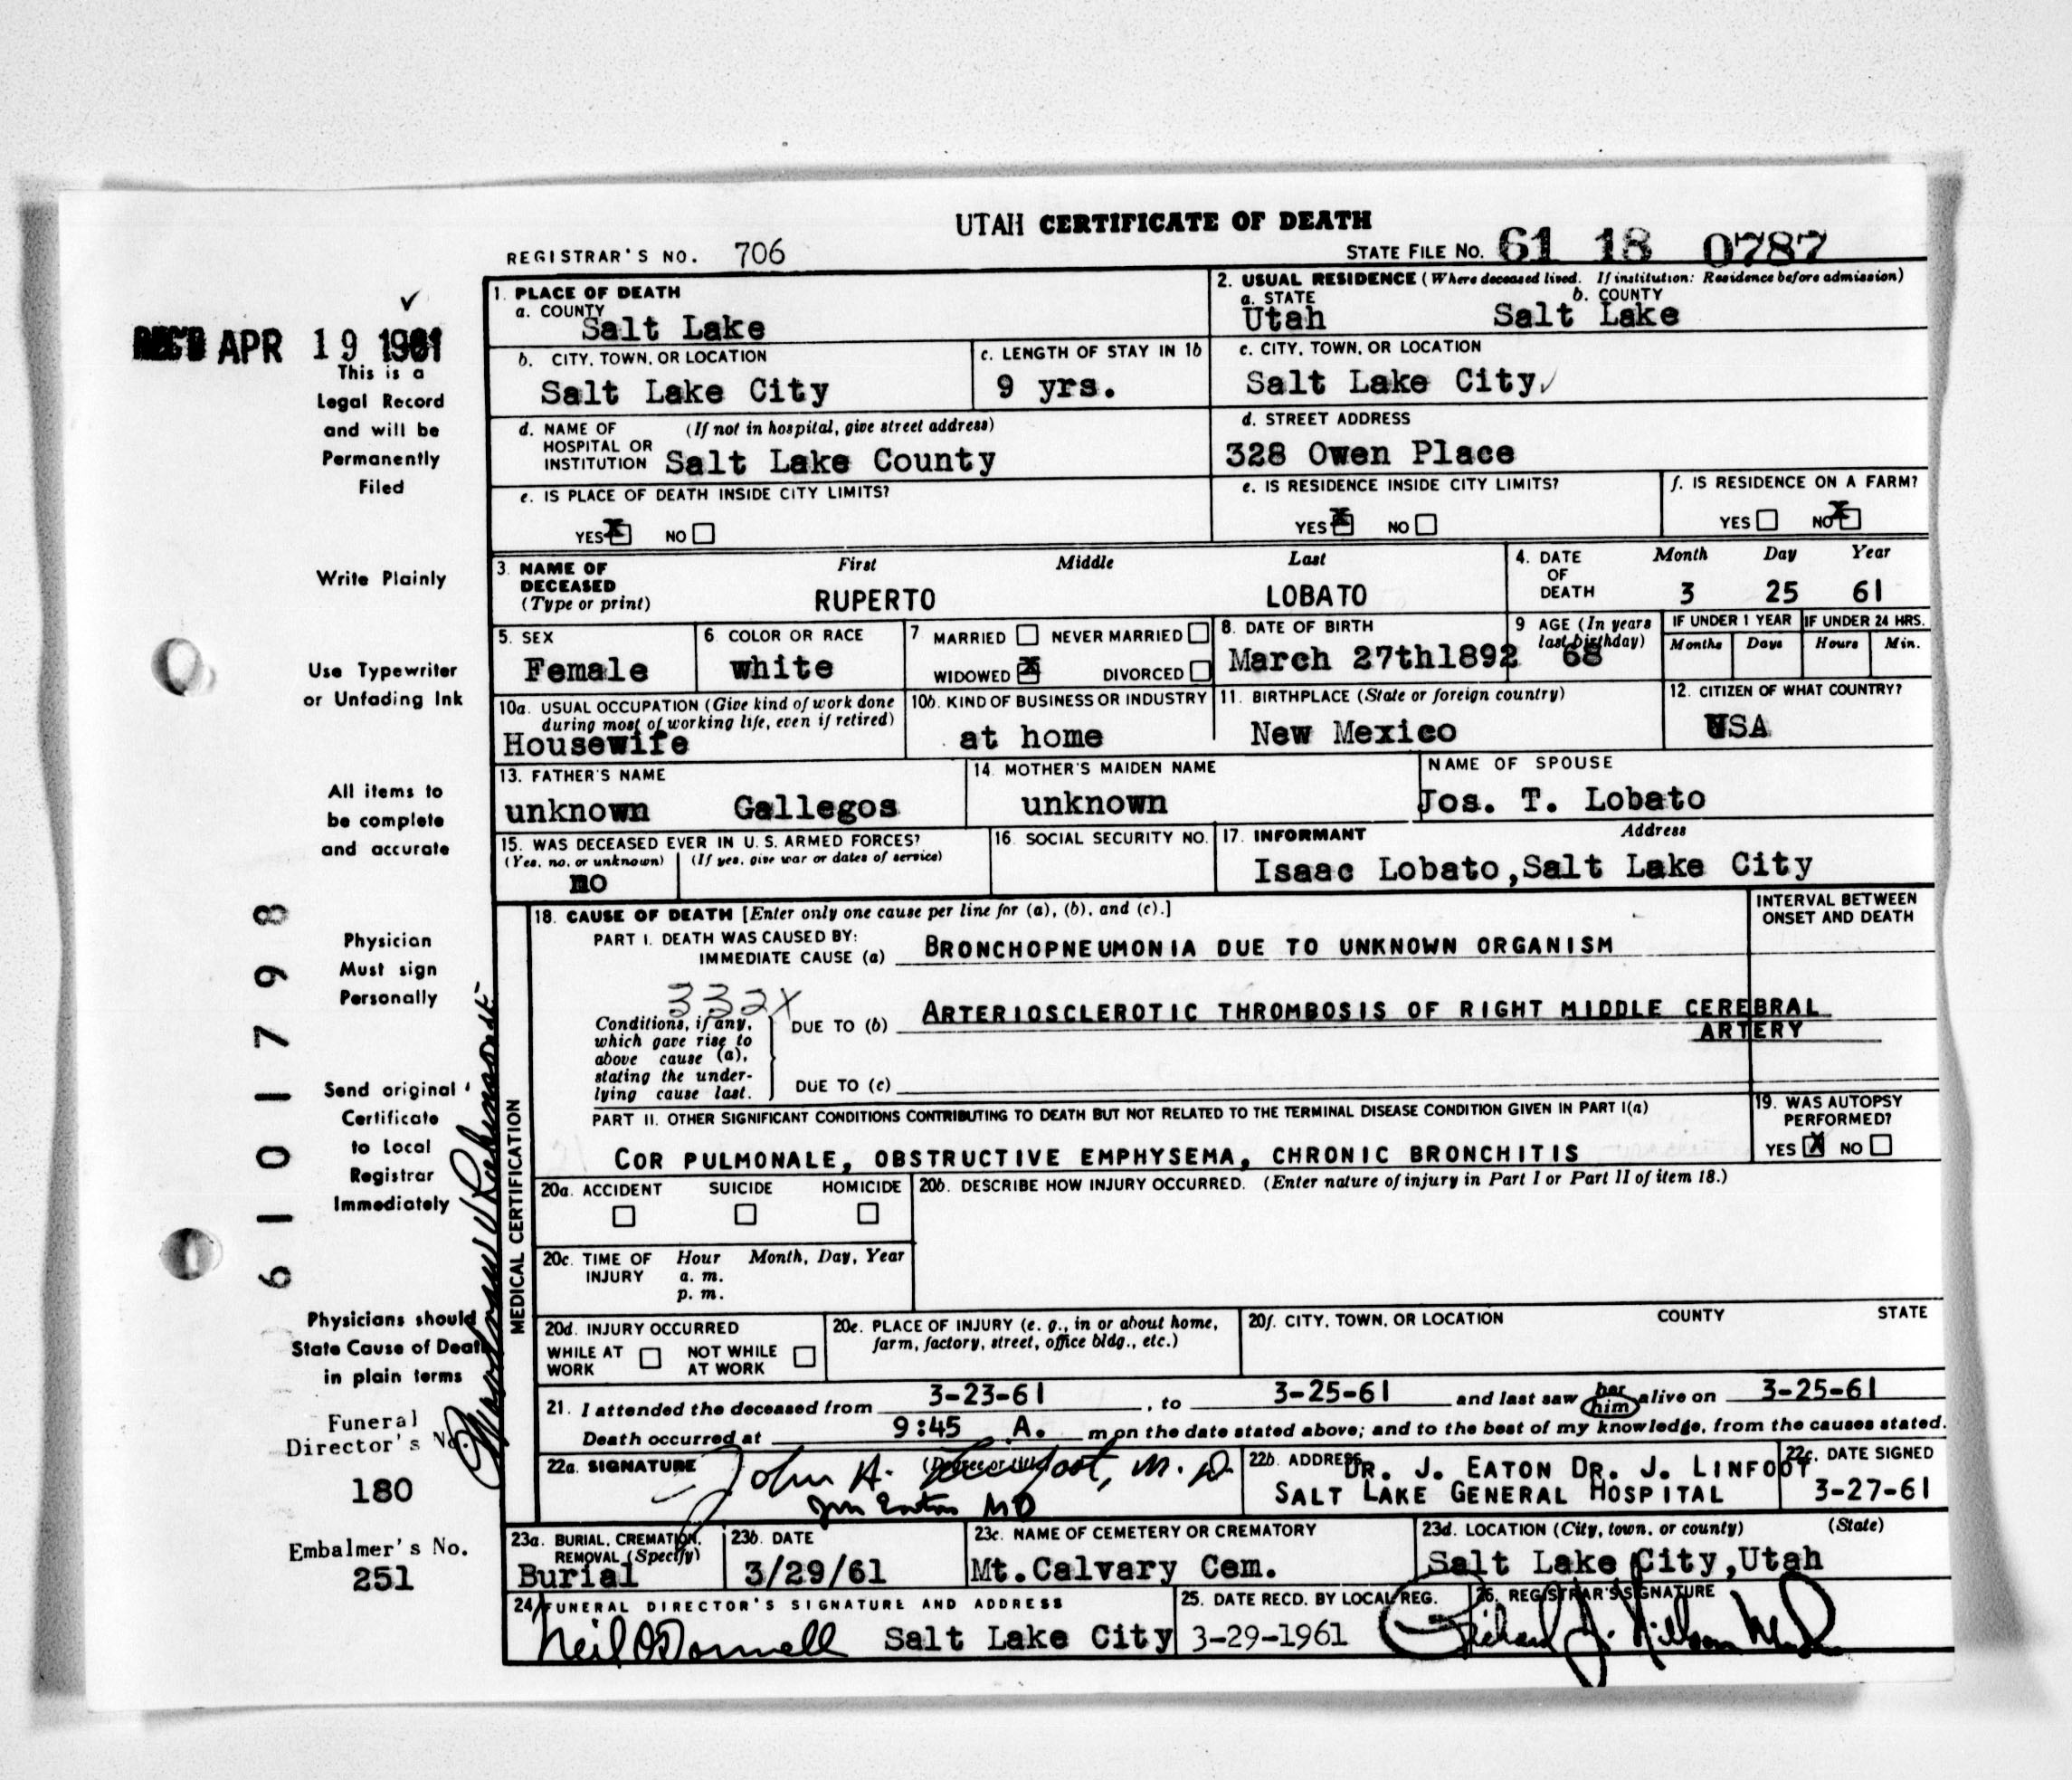 UTAH CERTIFICATE OF DEATH
REGISTRAR'S NO. 706
STATE FILE NO. 61 18 0787
REC'D APR 19 1961
This is a
Legal Record
and will be
Permanently
Filed
Write Plainly
Use Typewriter
or Unfading Ink
All items to
be complete
and accurate
Physician
Must sign
Personally
Send original
Certificate
to Local
Registrar
Immediately
Physicians should
State Cause of Death
in plain terms
Funeral
Director's No.
180
Embalmer's No.
251
6101798
1. PLACE OF DEATH
a. COUNTY
Salt Lake
2. USUAL RESIDENCE (Where deceased lived. If institution: Residence before admission)
a. STATE b. COUNTY
Utah Salt Lake
b. CITY, TOWN, OR LOCATION
Salt Lake City
c. LENGTH OF STAY IN 1b
9 yrs.
c. CITY, TOWN, OR LOCATION
Salt Lake City
d. NAME OF (If not in hospital, give street address)
HOSPITAL OR
INSTITUTION Salt Lake County
d. STREET ADDRESS
328 Owen Place
e. IS PLACE OF DEATH INSIDE CITY LIMITS?
YES X NO
e. IS RESIDENCE INSIDE CITY LIMITS?
YES X NO
f. IS RESIDENCE ON A FARM?
YES NO X
3. NAME OF First Middle Last
DECEASED
(Type or print) RUPERTO LOBATO
4. DATE Month Day Year
OF
DEATH 3 25 61
5. SEX
Female
6. COLOR OR RACE
white
7 MARRIED NEVER MARRIED
WIDOWED X DIVORCED
8. DATE OF BIRTH
March 27th1892
9 AGE (In years
last birthday)
68
IF UNDER 1 YEAR IF UNDER 24 HRS.
Months Days Hours Min.
10a. USUAL OCCUPATION (Give kind of work done
during most of working life, even if retired)
Housewife
10b. KIND OF BUSINESS OR INDUSTRY
at home
11. BIRTHPLACE (State or foreign country)
New Mexico
12. CITIZEN OF WHAT COUNTRY?
USA
13. FATHER'S NAME
unknown Gallegos
14. MOTHER'S MAIDEN NAME
unknown
NAME OF SPOUSE
Jos. T. Lobato
15. WAS DECEASED EVER IN U. S. ARMED FORCES?
(Yes, no, or unknown) (If yes, give war or dates of service)
no
16. SOCIAL SECURITY NO.
17. INFORMANT Address
Isaac Lobato,Salt Lake City
MEDICAL CERTIFICATION
18. CAUSE OF DEATH [Enter only one cause per line for (a), (b), and (c).]
INTERVAL BETWEEN
ONSET AND DEATH
PART I. DEATH WAS CAUSED BY:
IMMEDIATE CAUSE (a) BRONCHOPNEUMONIA DUE TO UNKNOWN ORGANISM
332X
Conditions, if any,
which gave rise to
above cause (a),
stating the under-
lying cause last.
DUE TO (b) ARTERIOSCLEROTIC THROMBOSIS OF RIGHT MIDDLE CEREBRAL
ARTERY
DUE TO (c)
PART II. OTHER SIGNIFICANT CONDITIONS CONTRIBUTING TO DEATH BUT NOT RELATED TO THE TERMINAL DISEASE CONDITION GIVEN IN PART I(a)
COR PULMONALE, OBSTRUCTIVE EMPHYSEMA, CHRONIC BRONCHITIS
19. WAS AUTOPSY
PERFORMED?
YES X NO
20a. ACCIDENT SUICIDE HOMICIDE
20b. DESCRIBE HOW INJURY OCCURRED. (Enter nature of injury in Part I or Part II of item 18.)
20c. TIME OF Hour Month, Day, Year
INJURY a. m.
p. m.
20d. INJURY OCCURRED
WHILE AT NOT WHILE
WORK AT WORK
20e. PLACE OF INJURY (e. g., in or about home,
farm, factory, street, office bldg., etc.)
20f. CITY, TOWN, OR LOCATION COUNTY STATE
21. I attended the deceased from 3-23-61, to 3-25-61 and last saw her him alive on 3-25-61
Death occurred at 9:45 A. m on the date stated above; and to the best of my knowledge, from the causes stated.
22a. SIGNATURE (Degree or title)
John H. Linfoot, M. D.
Jm Eaton MD
22b. ADDRESS
DR. J. EATON DR. J. LINFOOT
SALT LAKE GENERAL HOSPITAL
22c. DATE SIGNED
3-27-61
23a. BURIAL, CREMATION,
REMOVAL (Specify)
Burial
23b. DATE
3/29/61
23c. NAME OF CEMETERY OR CREMATORY
Mt.Calvary Cem.
23d. LOCATION (City, town, or county) (State)
Salt Lake City,Utah
24 FUNERAL DIRECTOR'S SIGNATURE AND ADDRESS
Neil O'Donnell Salt Lake City
25. DATE RECD. BY LOCAL REG.
3-29-1961
26. REGISTRAR'S SIGNATURE
Richard J.